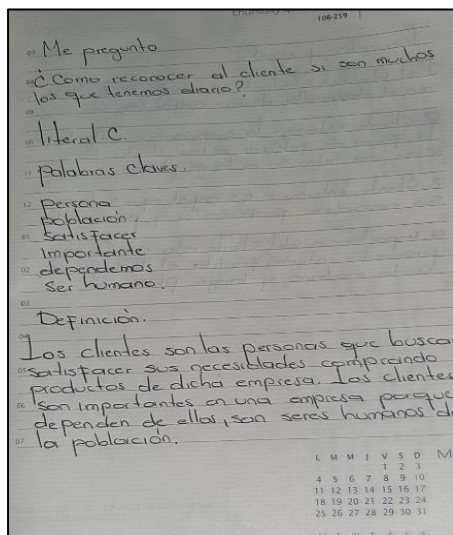 106-259
Me pregunto
¿Como reconocer al cliente si son muchos
los que tenemos diario?
literal C.
palabras claves.
persona
población.
satisfacer
Importante
dependemos
Ser humano.
Definición.
Los clientes son las personas que busca
satisfacer sus necesidades comprando
productos de dicha empresa. Los clientes
son importantes en una empresa porque
dependen de ellos, son seres humanos d
la población.
L M M J V S D M
1 2 3
4 5 6 7 8 9 10
11 12 13 14 15 16 17
18 19 20 21 22 23 24
25 26 27 28 29 30 31